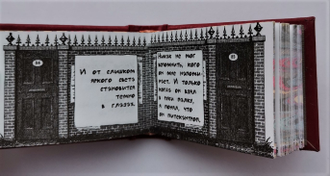 И от слишком
яркого света
становится
темно
в глазах.
Никак не мог
вспомнить, кого
он мне напоми-
нает. И только
когда он взял
в руки палку,
я понял, что
он питекантроп.